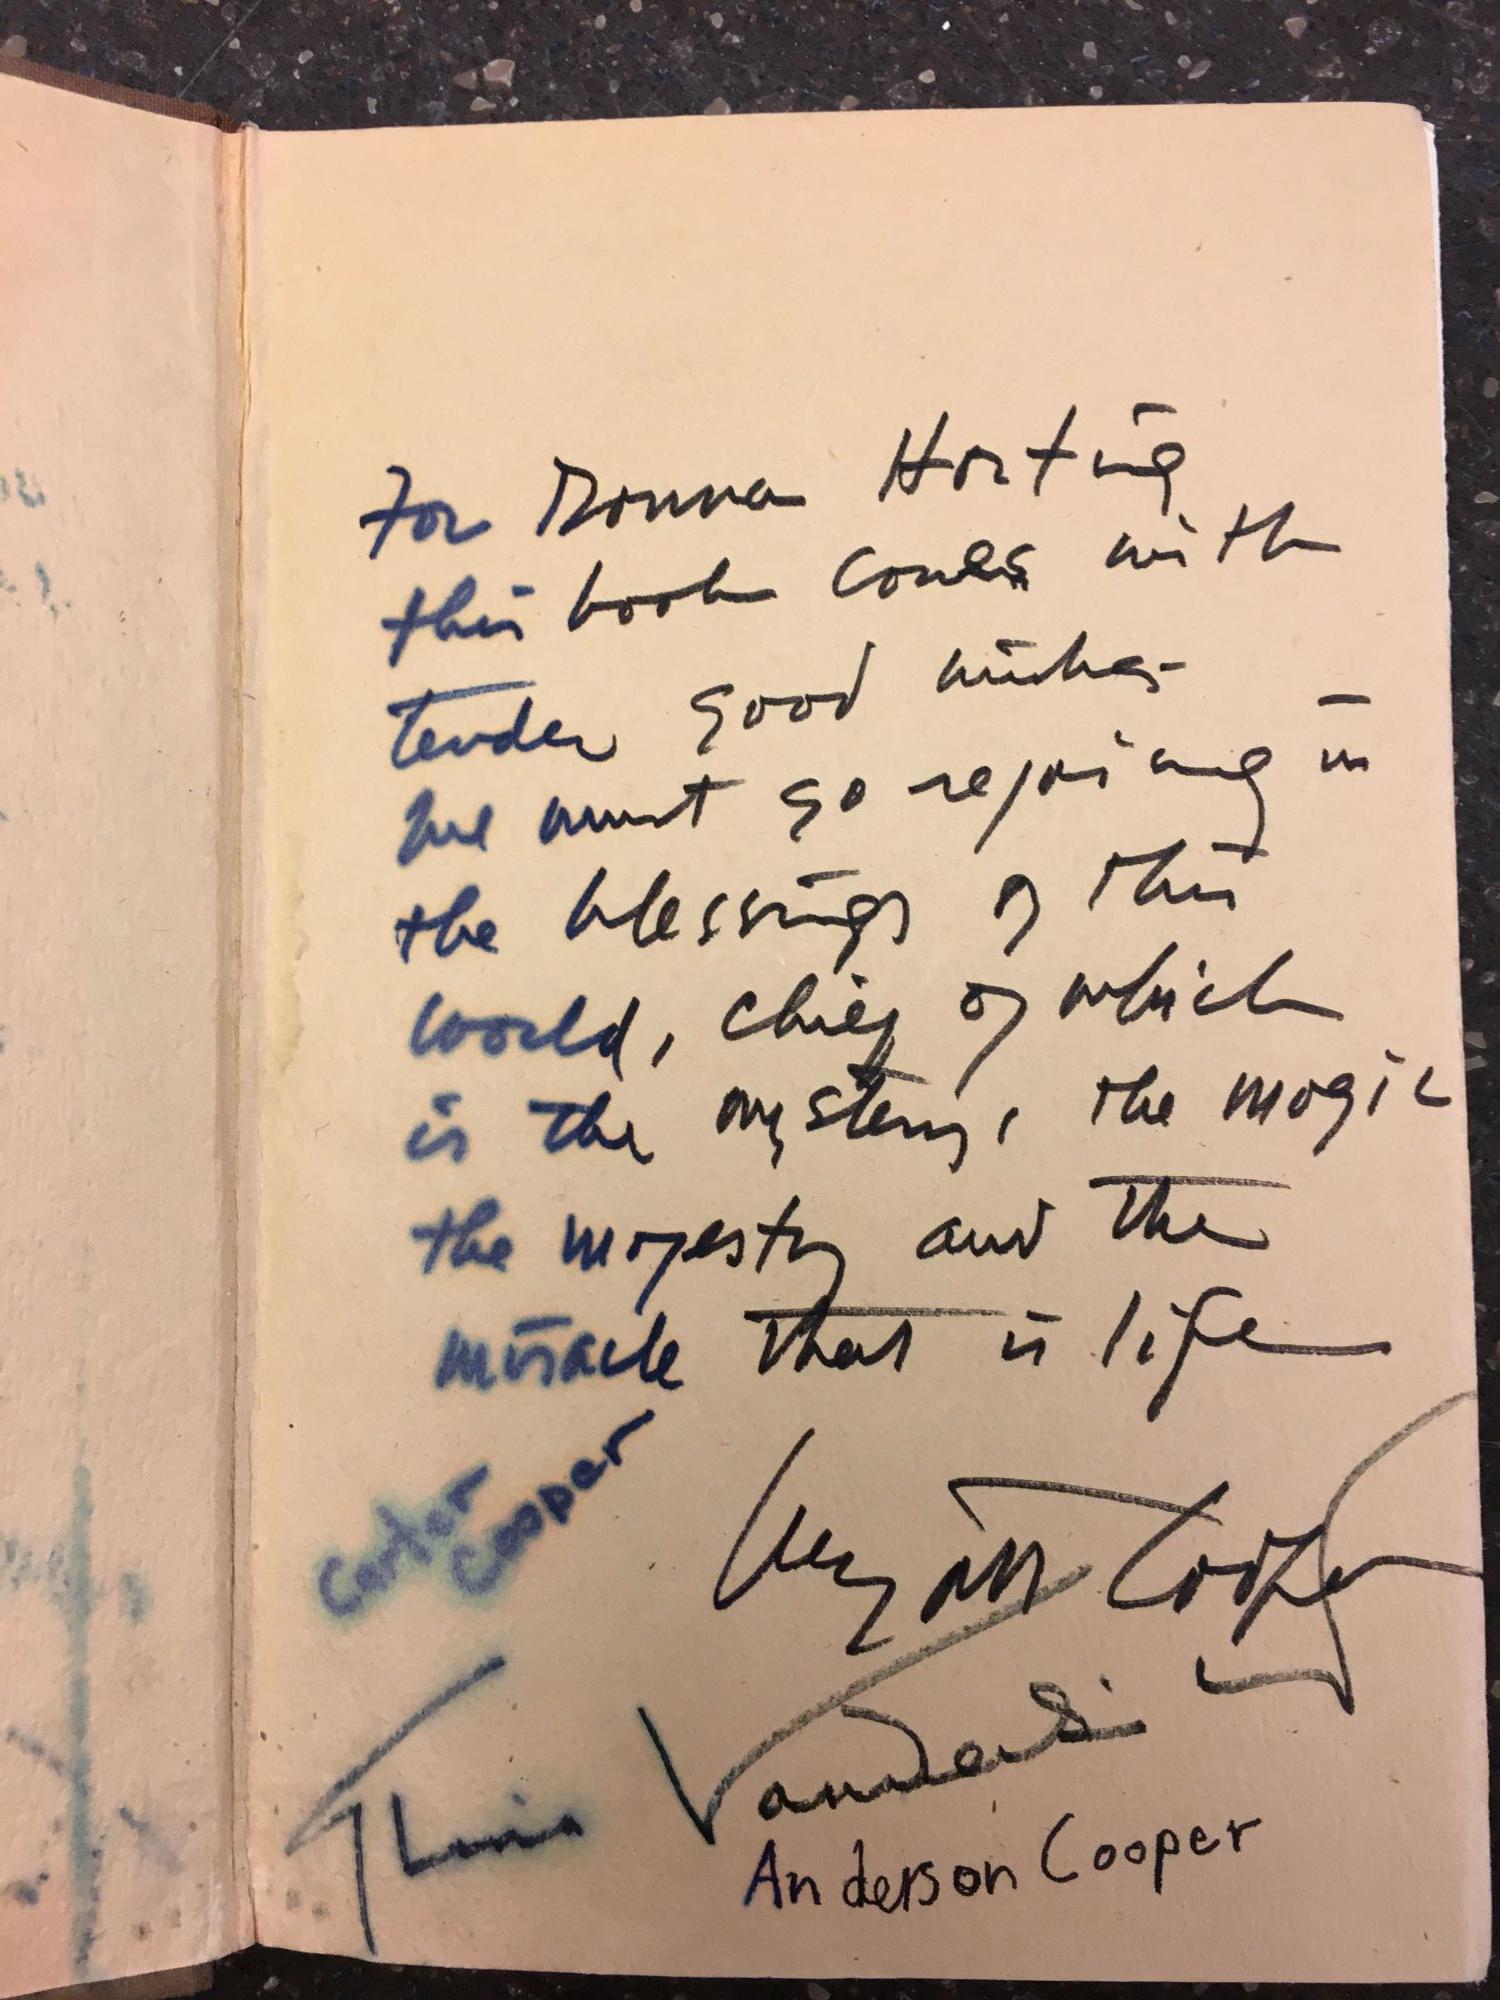 For Donna Horting
this book comes with
tender good wishes
we must go rejoicing in
the blessings of this
world, chief of which
is the mystery, the magic
the majesty and the
miracle that is life
Carter
Cooper
Wyatt Cooper
Gloria Vanderbilt
Anderson Cooper